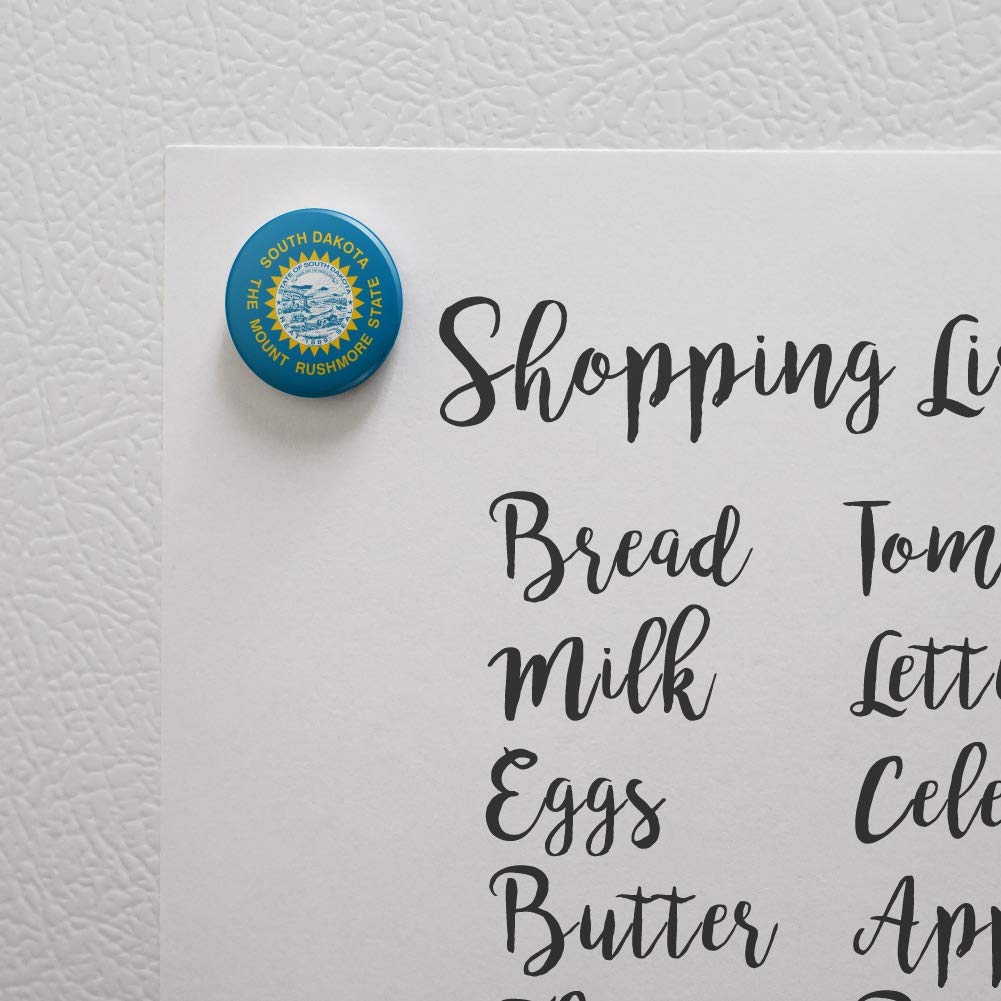 SOUTH DAKOTA
THE MOUNT RUSHMORE STATE
STATE OF SOUTH DAKOTA
GREAT 1889 SEAL
Shopping Li
Bread Tom
Milk Lett
Eggs Cele
Butter App